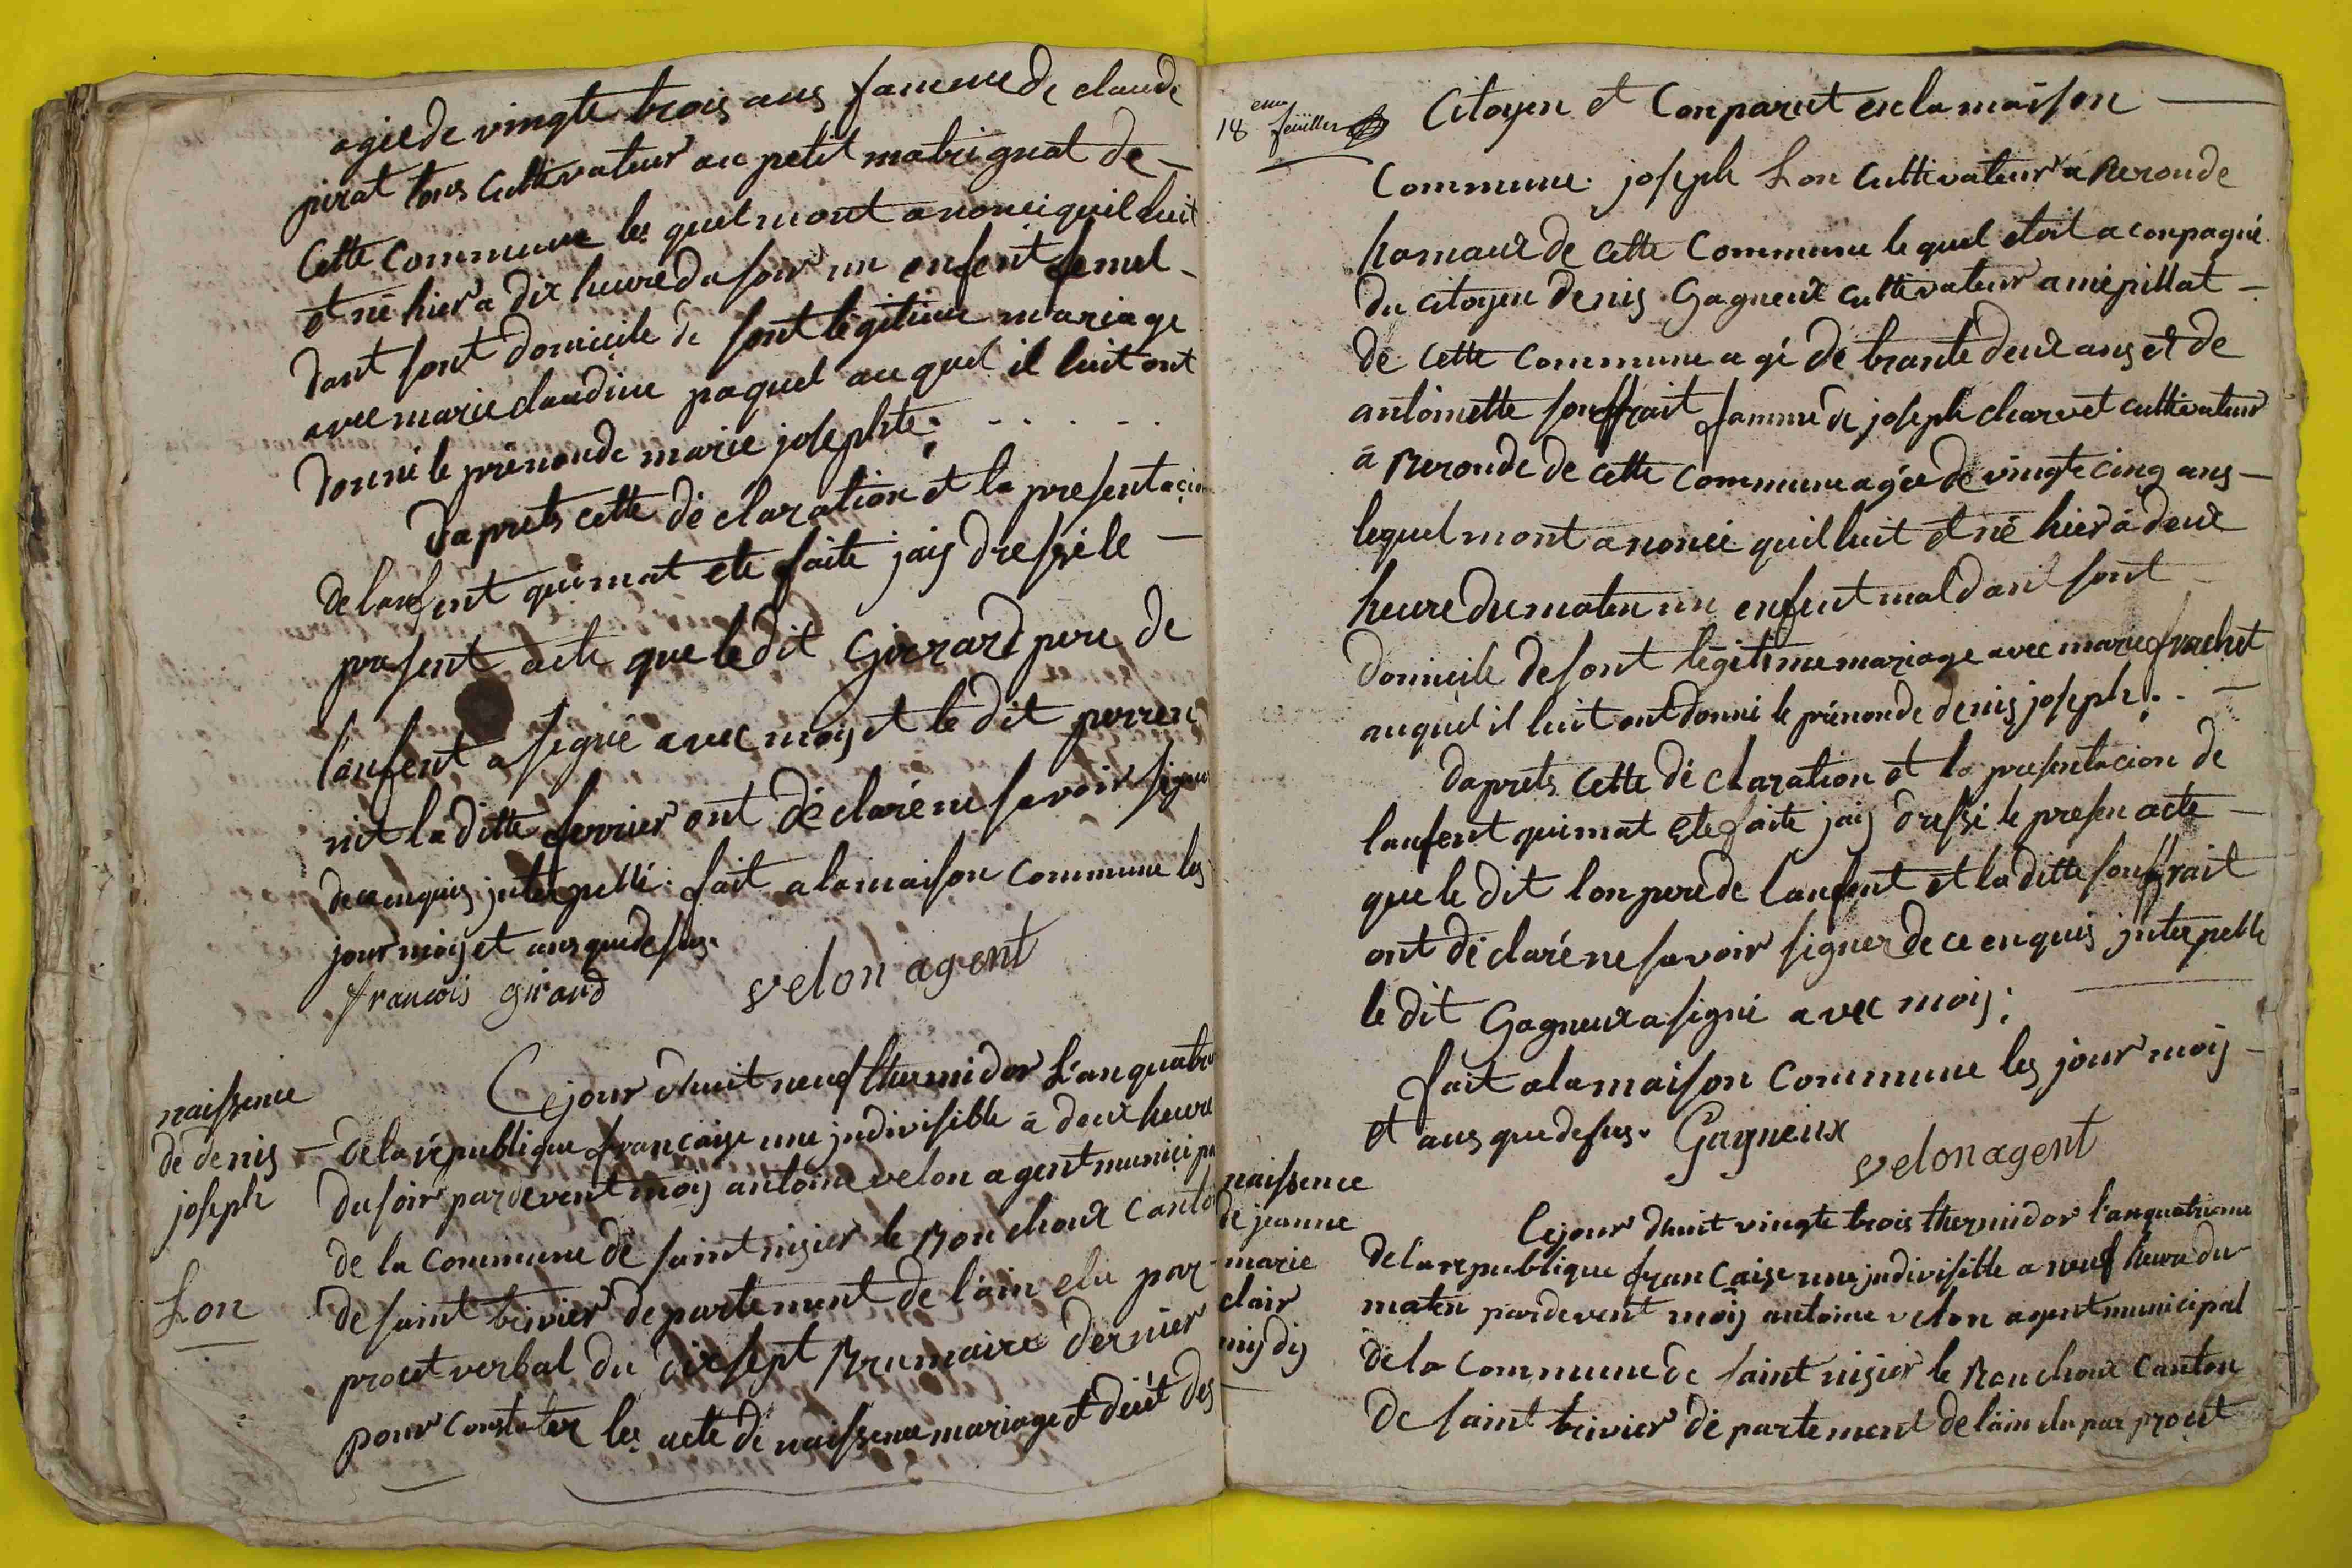 agiee de vingte trois ans famme de claude
pirat tous cultivateur au petit matrignat de
Cette Commune les quel mont anoncé quil luit
et né hier a dix heure du soir un enfent femel
dant sont domicile de sont légitime mariage
avec marie claudine paquel au quel il luit ont
donné le prénon de marie josephte; - . . - .
daprets cette déclaration et la presentacion
de lanfent qui mat ete faite jais dressé le
present acte que le dit Girrard pere de
lanfent a signé avec moy et le dit
nit la ditte ferrier ont déclaré ne savoir signer
de ce enquis jnterpellé: fait a la maison commune les
jour mois et ans que desus.
francois girard velon agent
naissence
de denis
joseph
Lon
Ce jour dhuit neuf thermidor L'an quatre
de la république francaise une jndivisible à deux heure
du soir par devent moy antoine velon agent municipa
de la commune de saint nisier le Bouchoux canto
de saint trivier departement de l'ain elu par
procet verbal du dix sept Brumaire dernier
pour constater les acte de naissence mariage et décét des
18 eme feüillet
Citoyen et Conparut en la maison
Commune joseph Lon cultivateur a Beronde
hamaux de cette Commune le quel etoit aconpagné
du citoyen denis Gagneux cultivateur a mépillat
de cette commune agé de trante deux ans et de
antoinette souffrait famme de joseph charvet cultivateur
à Beronde de cette commune agée de vingte cinq ans
lequel mont anoncé quil luit et né hier à deux
heure du maten un enfent mal dant sont
domicile de sont légitime mariage avec marie frachet
auquel il luit ont donné le prénon de denis joseph; . .
daprets cette déclaration et la presentacion de
lanfent qui mat ete faite jais dressé le presen acte
que le dit lon pere de lanfent et la ditte souffrait
ont déclaré ne savoir signer de ce enquis jnterpellé
le dit Gagneux a signé avec moy;
fait a la maison commune les jour mois
et ans que desus. Gagneux
velon agent
naissence
de jeanne
marie
clair
midy
Ce jour dhuit vingte trois thermidor l'an quatrieme
de la republique francaise une jndivisible a neuf heure du
maten par devent moy antoine velon agent municipal
de la commune de saint nisier le Bouchoux canton
de saint trivier departement de lain elu par procet